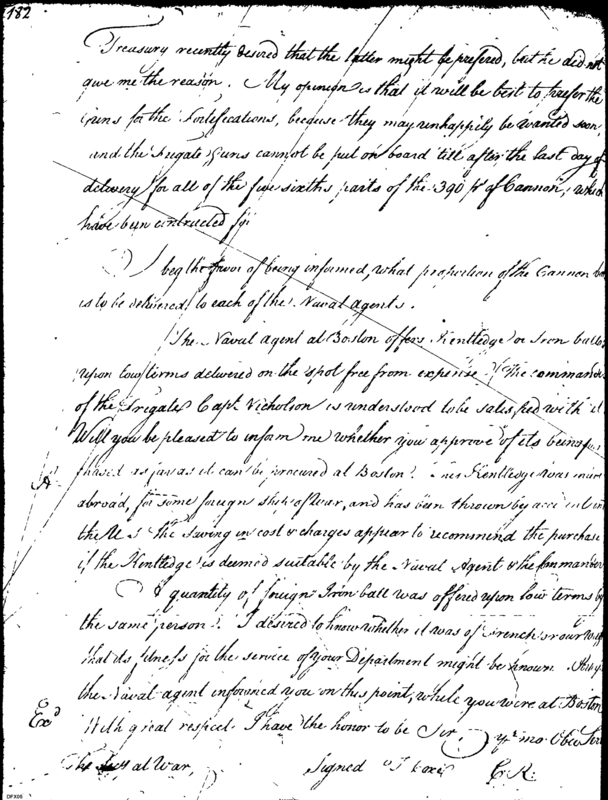 182
Treasury recently desired that the latter might be prefered, but he did not
give me the reason. My opinion is that it will be best to prefer the
Guns for the Fortifications, because they may unhappily be wanted soon,
and the Frigate Guns cannot be put on board till after the last day of
delivery for all of the five sixths parts of the 390 ps of Cannon, which
have been contracted for
I beg the favor of being informed, what proportion of the Cannon
is to be delivered to each of the Naval agents.
The Naval agent at Boston offers Kentledge or Iron
upon low terms delivered on the spot free from expense. The commander
of the Frigate Capt. Nicholson is understood to be satisfied with it
Will you be pleased to inform me whether you approve of its being pur
chased as far as it can be procured at Boston. This Kentledge was
abroad, for some foreign ship of war, and has been thrown by accident into
the U S the saving in cost & charges appear to recommend the purchase
if the Kentledge is deemed suitable by the Naval Agent & the Commander
A quantity of foreign Iron ball was offered upon low terms by
the same person. I desired to know whether it was of French or our
that its fitness for the service of your Department might be known.
the Naval agent informed you on this point, while you were at Boston
Exd With great respect I have the honor to be Sir, yr mo. Obed Serv
The Secy at War, Signed T Coxe C. R.
DFX05